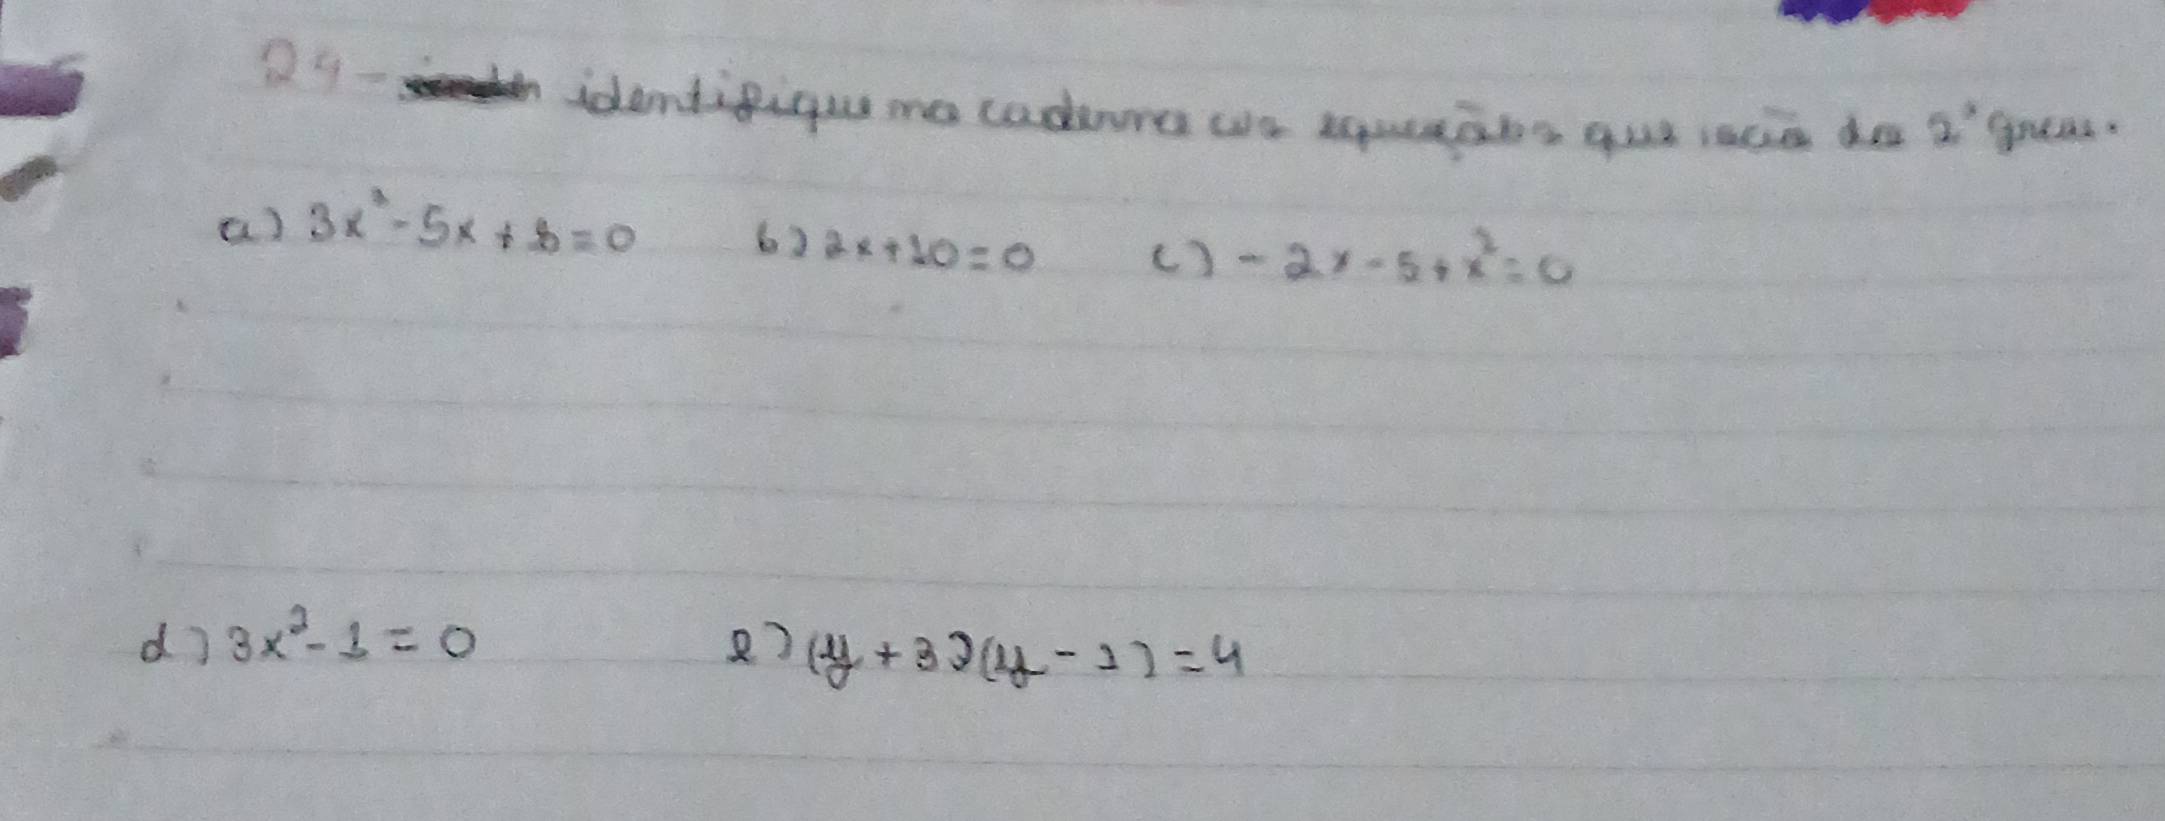 24 - identifique no caderno as equações que são do 2° grau.
a) 3x² - 5x + 8 = 0 b) 2x + 10 = 0 c) - 2x - 5 + x² = 0
d) 3x² - 1 = 0 e) (y + 3)(y - 1) = 4